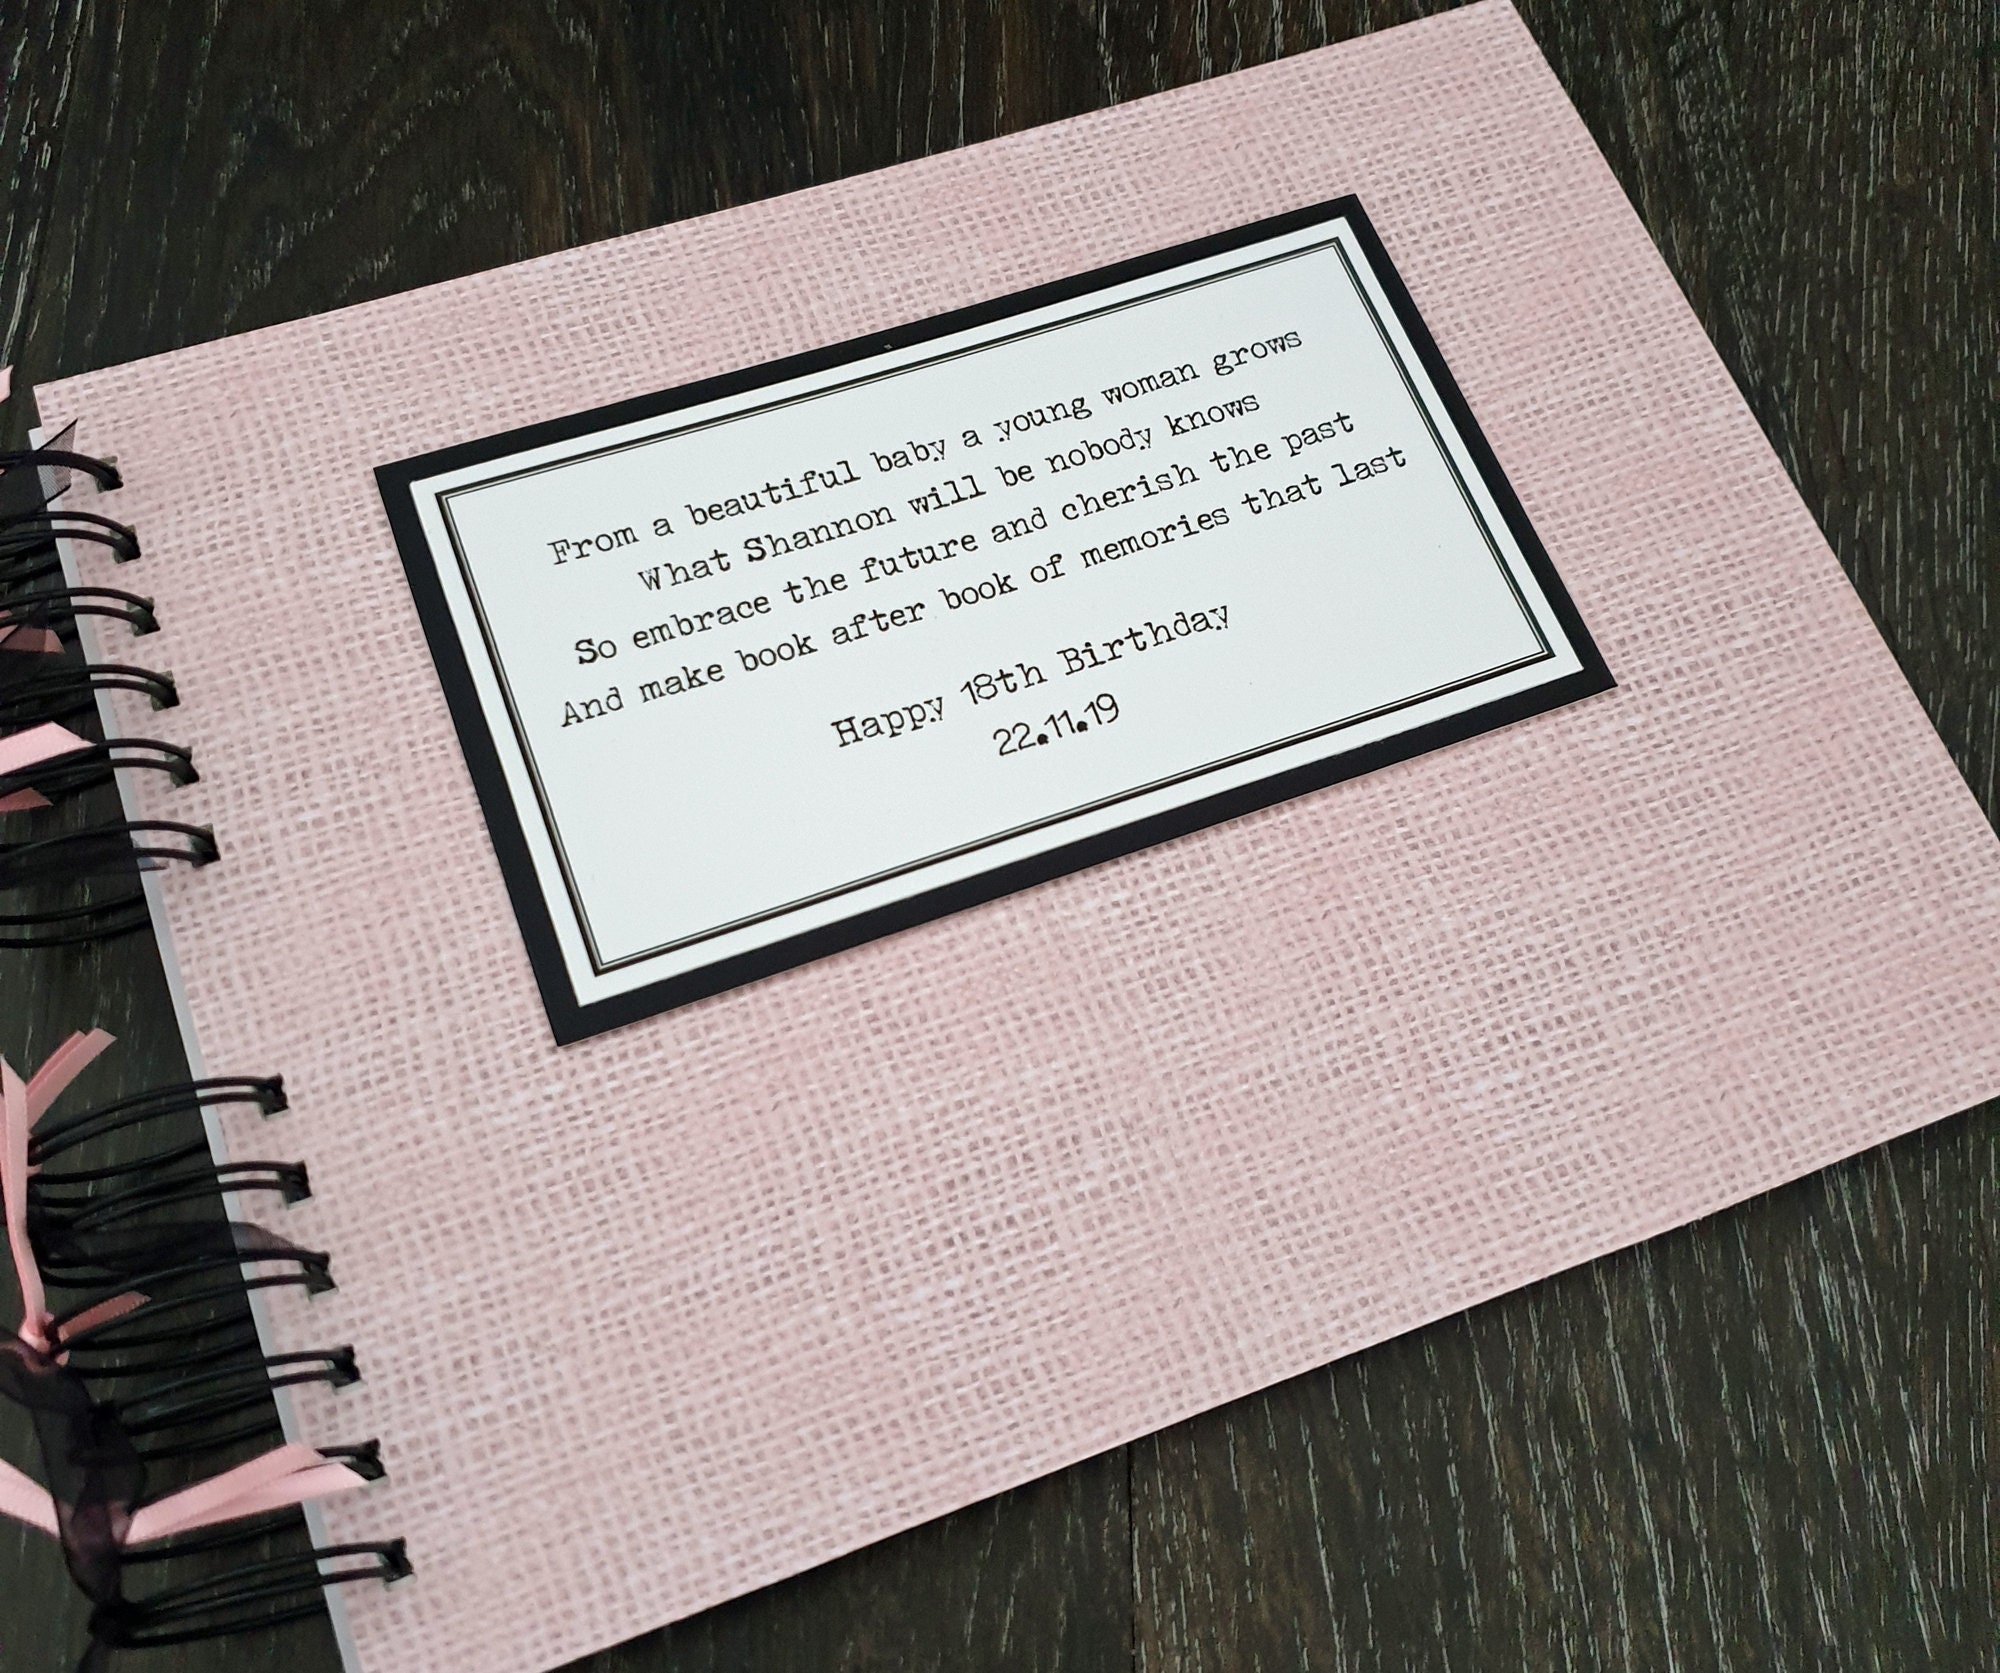 From a beautiful baby a young woman grows
What Shannon will be nobody knows
So embrace the future and cherish the past
And make book after book of memories that last
Happy 18th Birthday
22.11.19